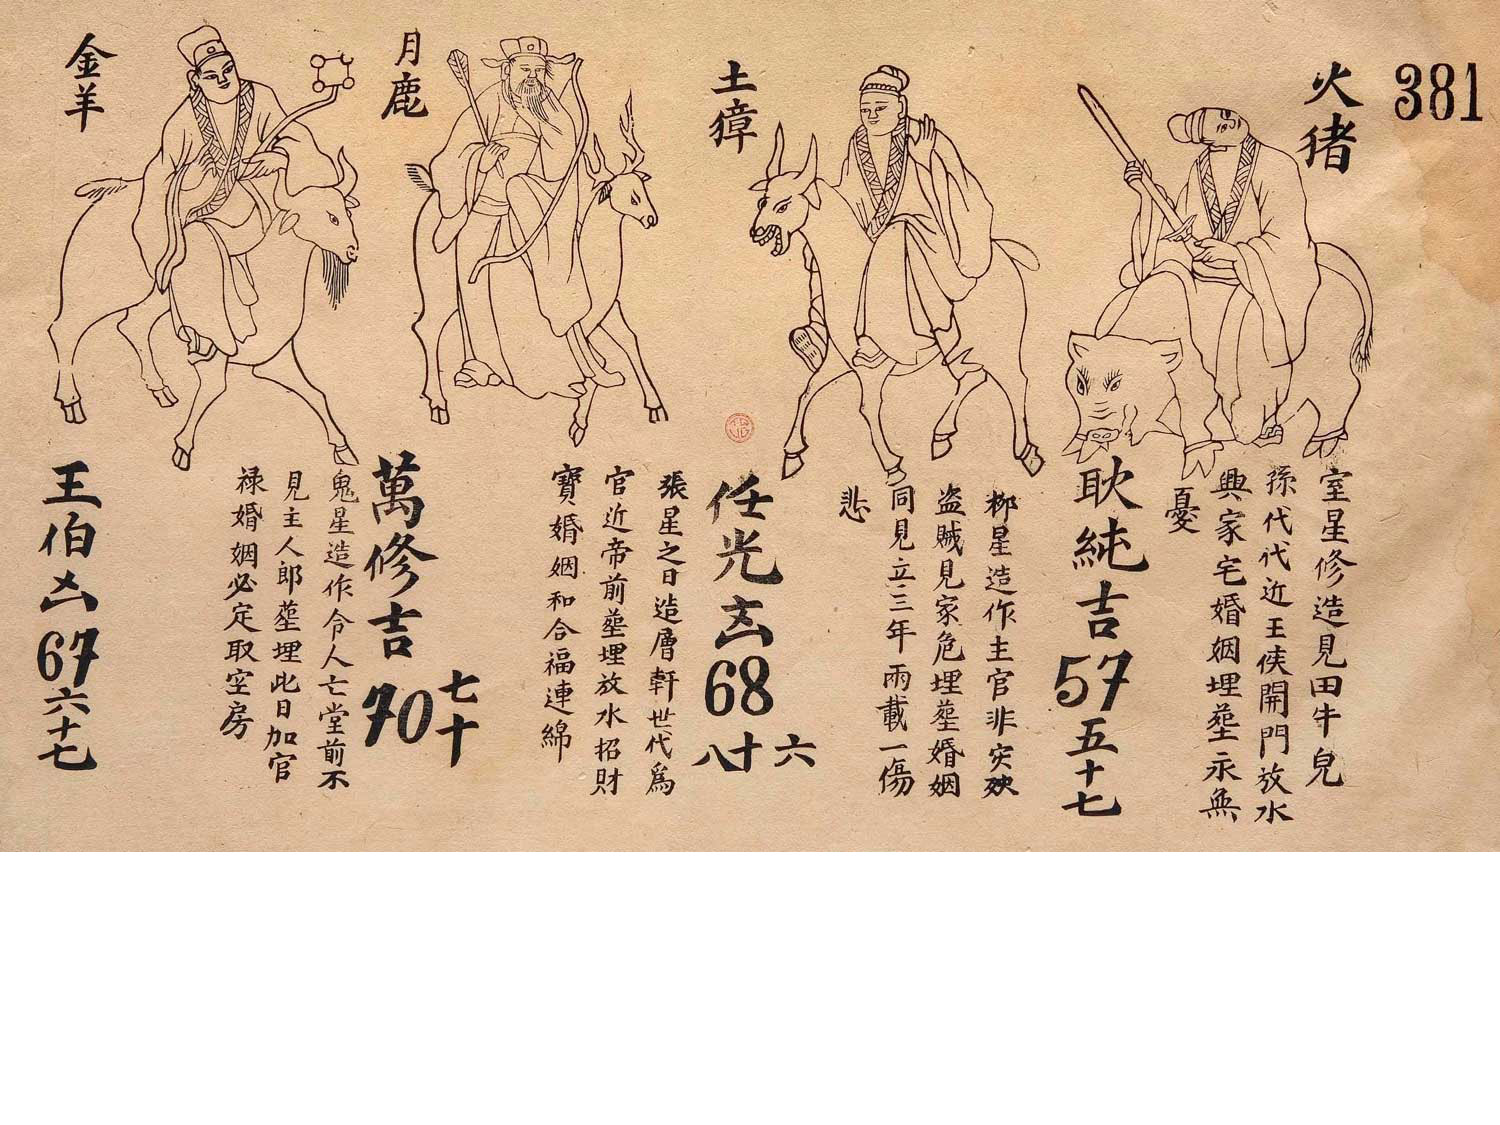 381
火猪
室星修造見田牛皃
孫代代近王侯開門放水
興家宅婚姻埋塟永無
憂
耿純吉
57
五十七
土獐
柳星造作主官非灾殃
盗賊見家危埋塟婚姻
同見立三年兩載一傷
悲
任光㐫
68
六十八
月鹿
張星之日造層軒世代為
官近帝前塟埋放水招財
寶婚姻和合福連綿
萬修吉
70
七十
金羊
鬼星造作令人亡堂前不
見主人郎塟埋此日加官
禄婚姻必定取空房
王伯凶
67
六十七